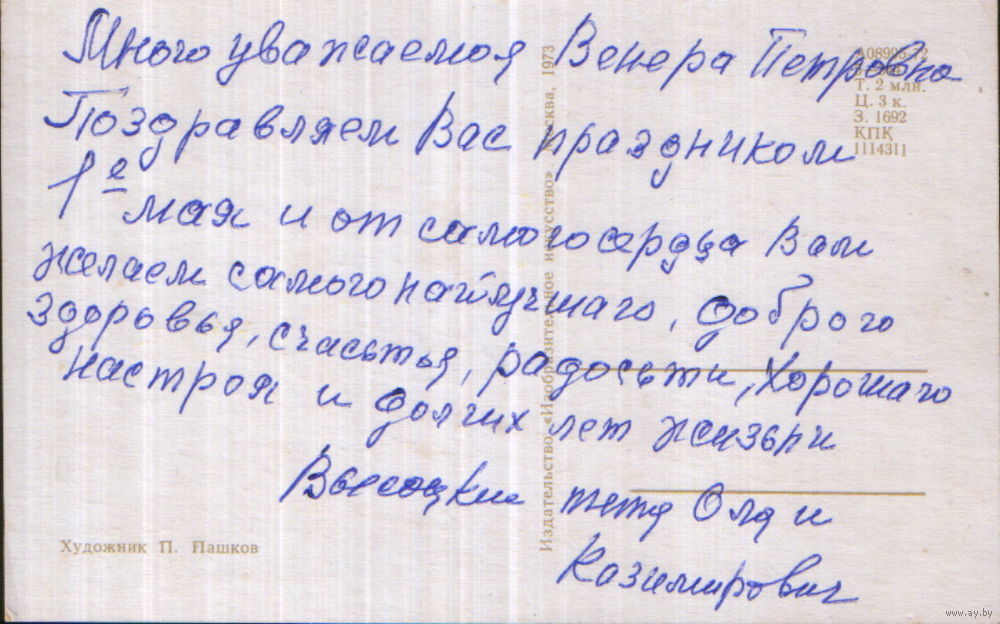 Много уважаемоя Венера Петровна
Поздравляем Вас праздником
1е мая и от самого сердца Вам
желаем самого наилучшаго, доброго
здоровья, счасьтья, радосьти, хорошаго
настроя и долгих лет жизьни
Высоцкие тетя Оля и
Казимирович
Художник П. Пашков
Издательство «Изобразительное искусство». Москва, 1973
А08995-72
Т. 2 млн.
Ц. 3 к.
З. 1692
КПК
1114311
www.ay.by